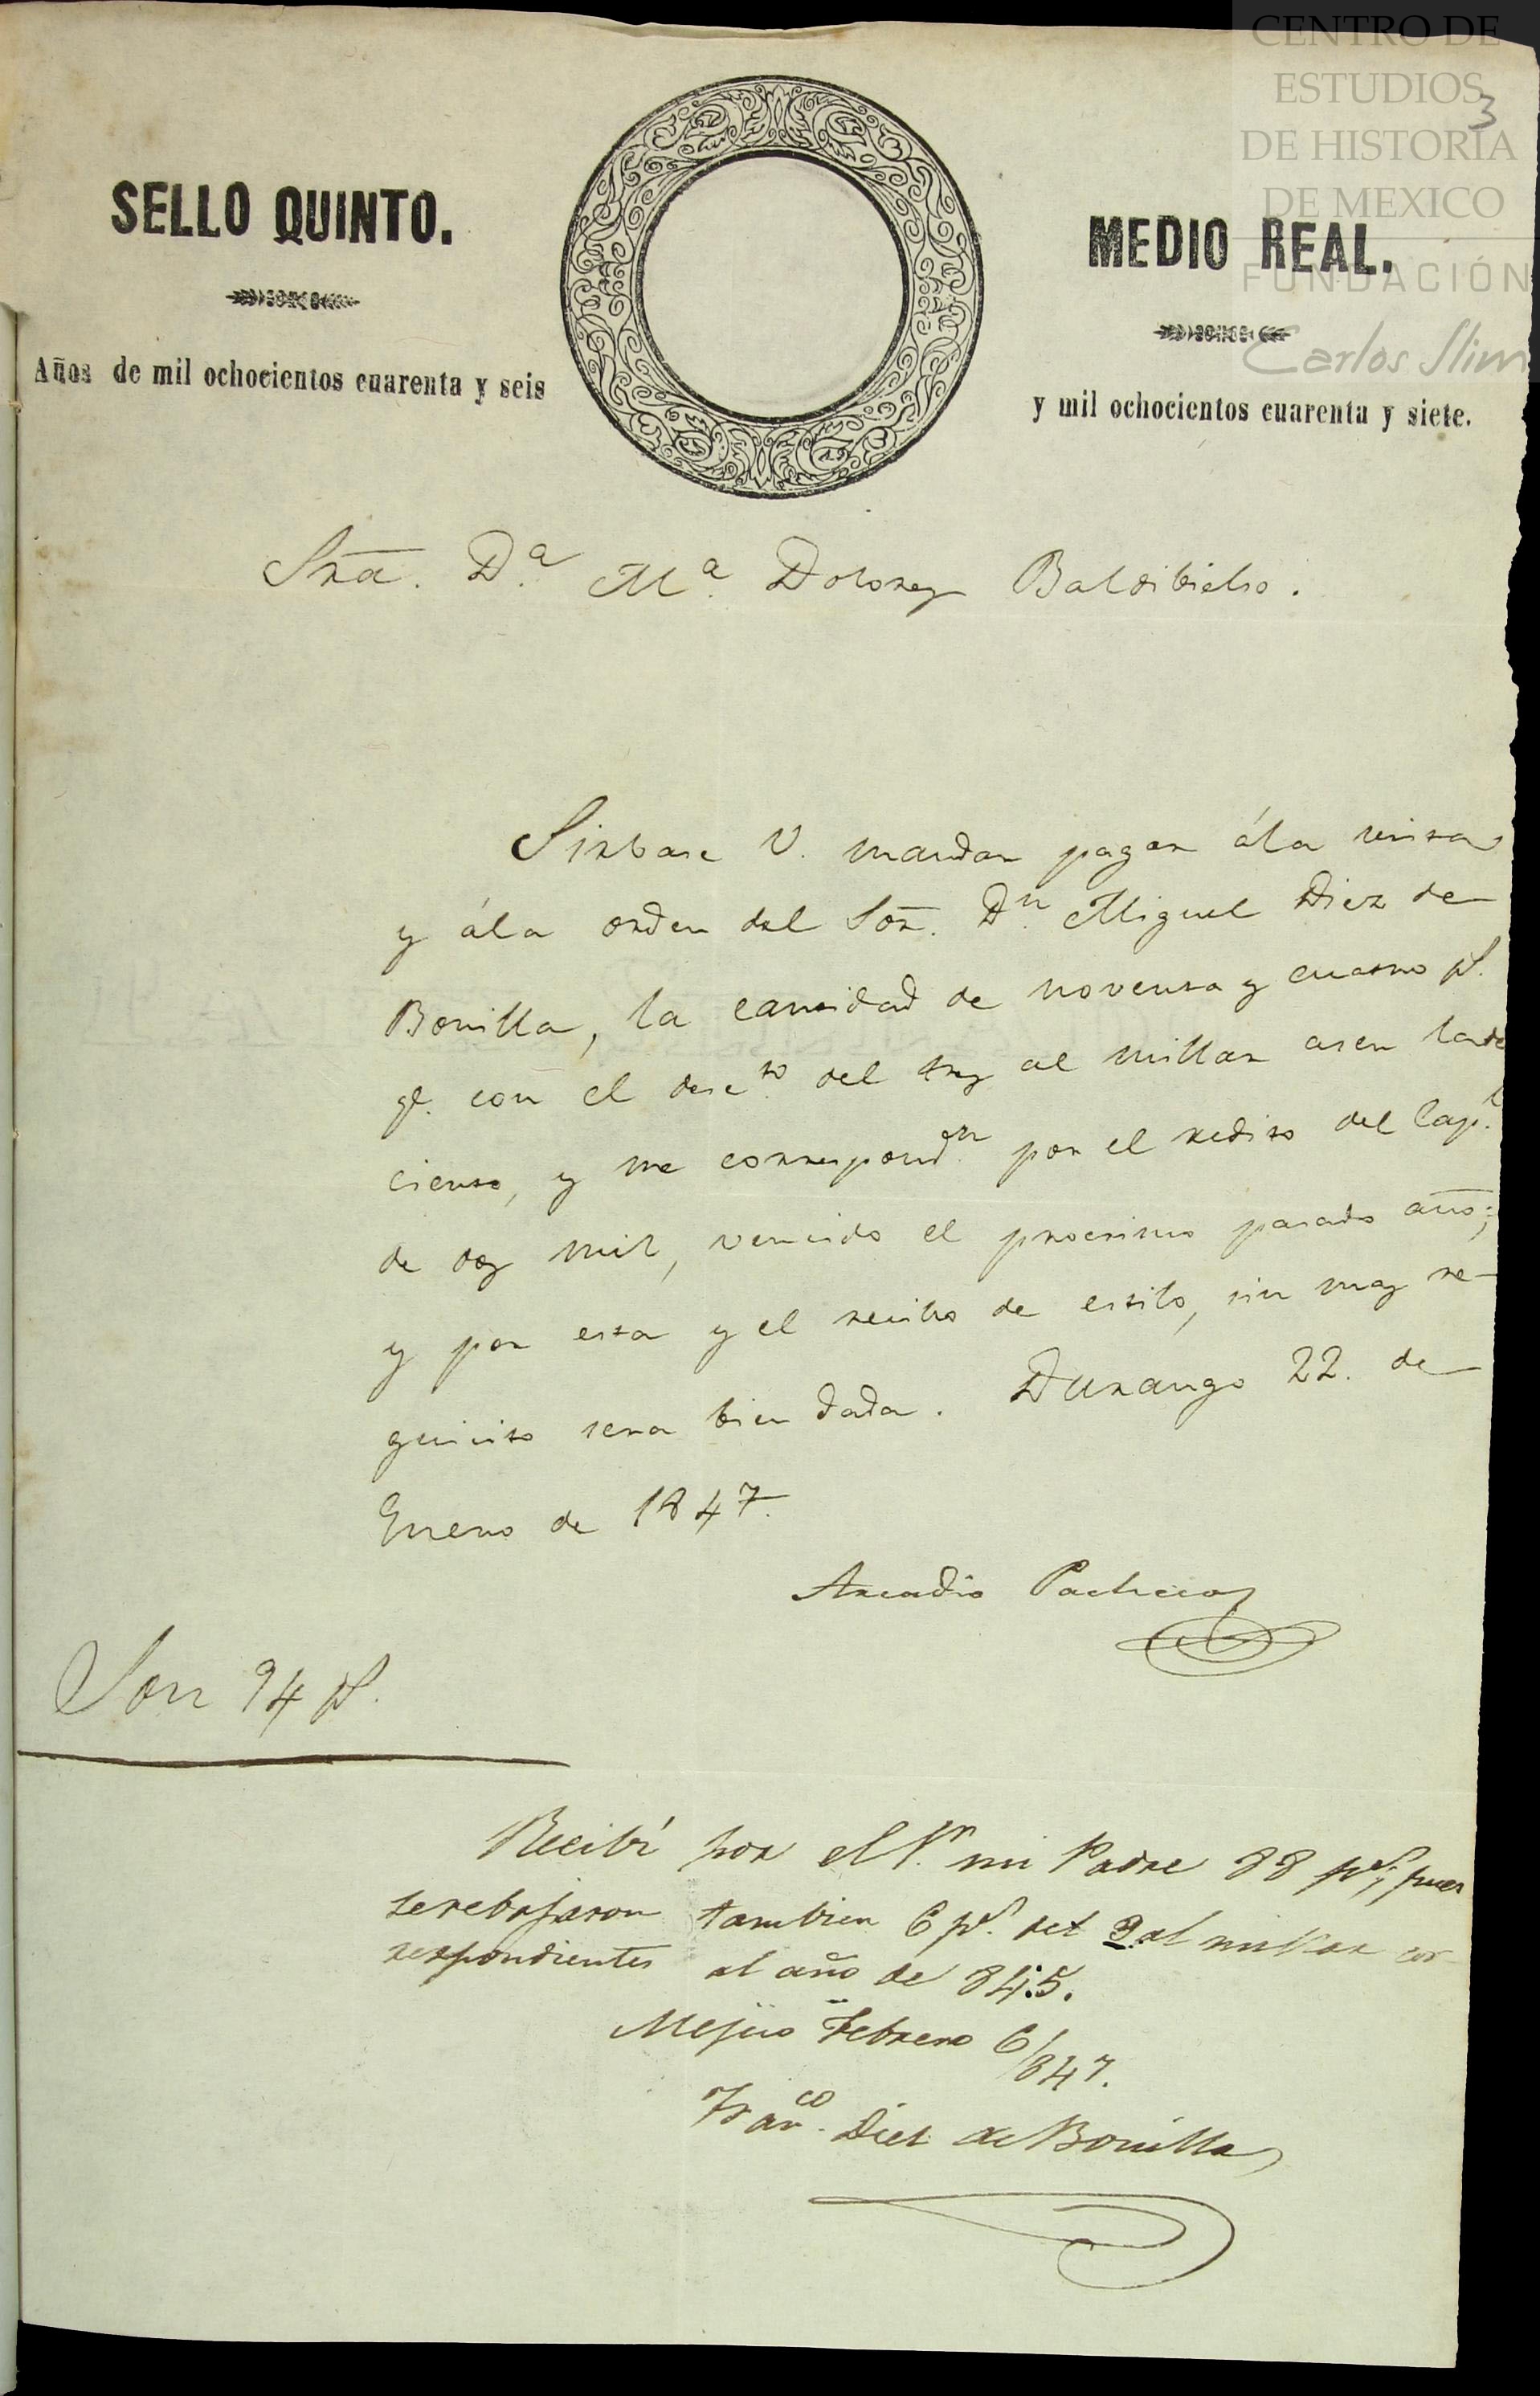 CENTRO DE
ESTUDIOS
DE HISTORIA
DE MEXICO
FUNDACIÓN
Carlos Slim
3
SELLO QUINTO.
MEDIO REAL.
Años de mil ochocientos cuarenta y seis
y mil ochocientos cuarenta y siete.
Sra. D.a M.a Dolores Baldibielso.
Sirbase V. mandar pagar á la vista
y á la orden del Sor. D.n Miguel Diez de
Bonilla, la cantidad de noventa y cuatro ps.
qe. con el desc.to del tres al millar asen la de
ciento, y me correspond.n por el redito del Cap.l
de dos mil, vencido el procsimo pasado año;
y por esta y el recibo de estilo, sin mas re-
quicito sera bien dada. Durango 22. de
Enero de 1847.
Arcadio Pacheco
Son 94 ps.
Recibí por el S.r mi Padre 88 ps; pues
se rebajaron tambien 6 ps. del 3 al millar cor-
respondientes al año de 845.
Mejico Febrero 6/847.
Fran.co Diez de Bonilla